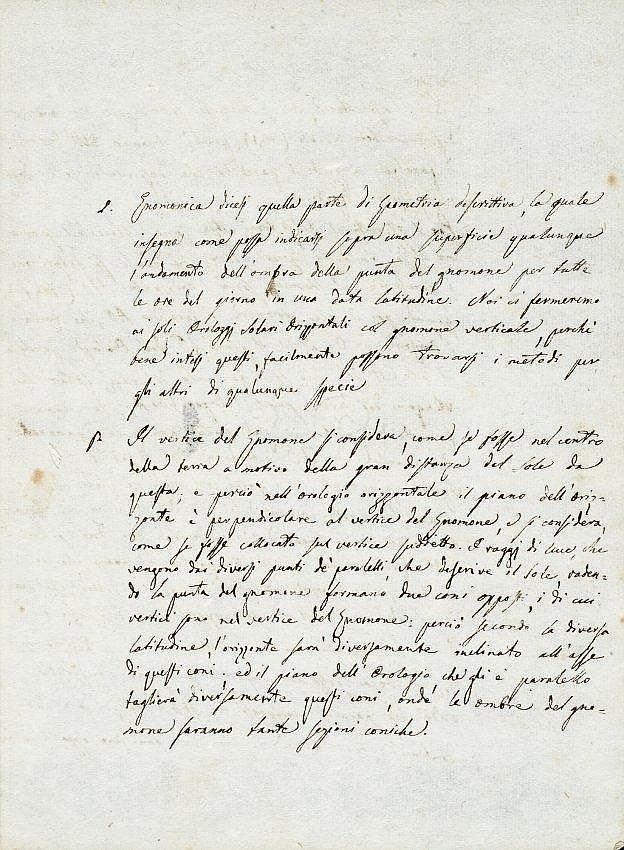 Gnomonica dicesi quella parte di Geometria descrittiva, la quale
insegna come possa indicarsi sopra una superficie qualunque
l'andamento dell'ombra della punta del gnomone per tutte
le ore del giorno in una data latitudine. Noi ci fermeremo
ai soli Orologgi Solari Orizzontali col gnomone verticale, perchè
bene intesi questi, facilmente possono trovarsi i metodi per
gli altri di qualunque specie
Il vertice del Gnomone si considera, come se fosse nel centro
della terra a motivo della gran distanza del Sole da
questa, e perciò nell'orologio orizzontale il piano dell'Oriz-
zonte è perpendicolare al vertice del Gnomone, e si considera,
come se fosse collocato sul vertice suddetto. I raggi di luce, che
vengono dai diversi punti de' paralelli, che descrive il Sole, raden-
do la punta del gnomone formano due coni opposti, i di cui
vertici sono nel vertice del Gnomone: perciò secondo la diversa
latitudine, l'orizzonte sarà diversamente inclinato all'asse
di questi coni. ed il piano dell'Orologio che gli è paralello
taglierà diversamente questi coni, onde le ombre del gno-
mone saranno tante sezioni coniche.